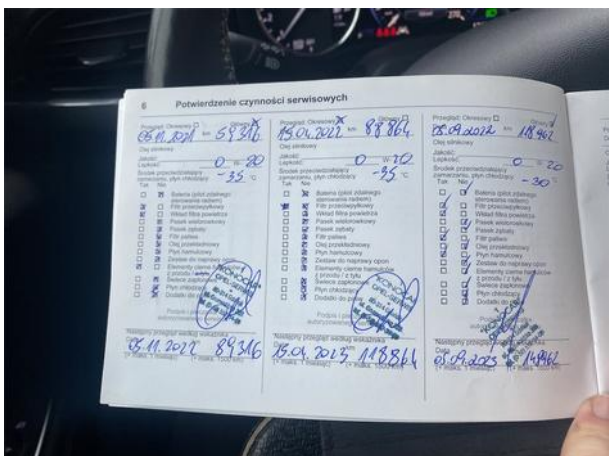 6 Potwierdzenie czynności serwisowych
Przegląd: Okresowy Główny
05.11.2021 km 59316
Olej silnikowy
Jakość:
Lepkość: 0 W- 20
Środek przeciwdziałający
zamarzaniu, płyn chłodzący -35 °C
Tak Nie
Bateria (pilot zdalnego
sterowania radiem)
Filtr przeciwpyłkowy
Wkład filtra powietrza
Pasek wielorowkowy
Pasek zębaty
Filtr paliwa
Olej przekładniowy
Płyn hamulcowy
Zestaw do naprawy opon
Elementy cierne hamulców
z przodu /
Świece zapłonowe
Płyn chłodzący
Dodatki do
Następny przegląd według wskaźnika
05.11.2022 89316
(+ maks. 1 miesiąc) (+ maks. 1500 km)
Przegląd: Okresowy Główny
15.04.2022 km 88864
Olej silnikowy
Jakość:
Lepkość: 0 W- 20
Środek przeciwdziałający
zamarzaniu, płyn chłodzący -35 °C
Tak Nie
Bateria (pilot zdalnego
sterowania radiem)
Filtr przeciwpyłkowy
Wkład filtra powietrza
Pasek wielorowkowy
Pasek zębaty
Filtr paliwa
Olej przekładniowy
Płyn hamulcowy
Zestaw do naprawy opon
Elementy cierne hamulców
z przodu / z tyłu
Świece zapłonowe
Płyn chłodzący
Dodatki do
Następny przegląd według wskaźnika
15.04.2023 km 118864
(+ maks. 1 miesiąc) (+ maks. 1500 km)
Przegląd: Okresowy Główny
05.09.2022 km 118962
Olej silnikowy
Jakość:
Lepkość: 0 W- 20
Środek przeciwdziałający
zamarzaniu, płyn chłodzący -30 °C
Tak Nie
Bateria (pilot zdalnego
sterowania radiem)
Filtr przeciwpyłkowy
Wkład filtra powietrza
Pasek wielorowkowy
Pasek zębaty
Filtr paliwa
Olej przekładniowy
Płyn hamulcowy
Zestaw do naprawy opon
Elementy cierne hamulców
z przodu / z tyłu
Świece zapłonowe
Płyn chłodzący
Dodatki do
Następny przegląd według wskaźnika
05.09.2023 148962
(+ maks. 1 miesiąc) (+ maks. 1500 km)